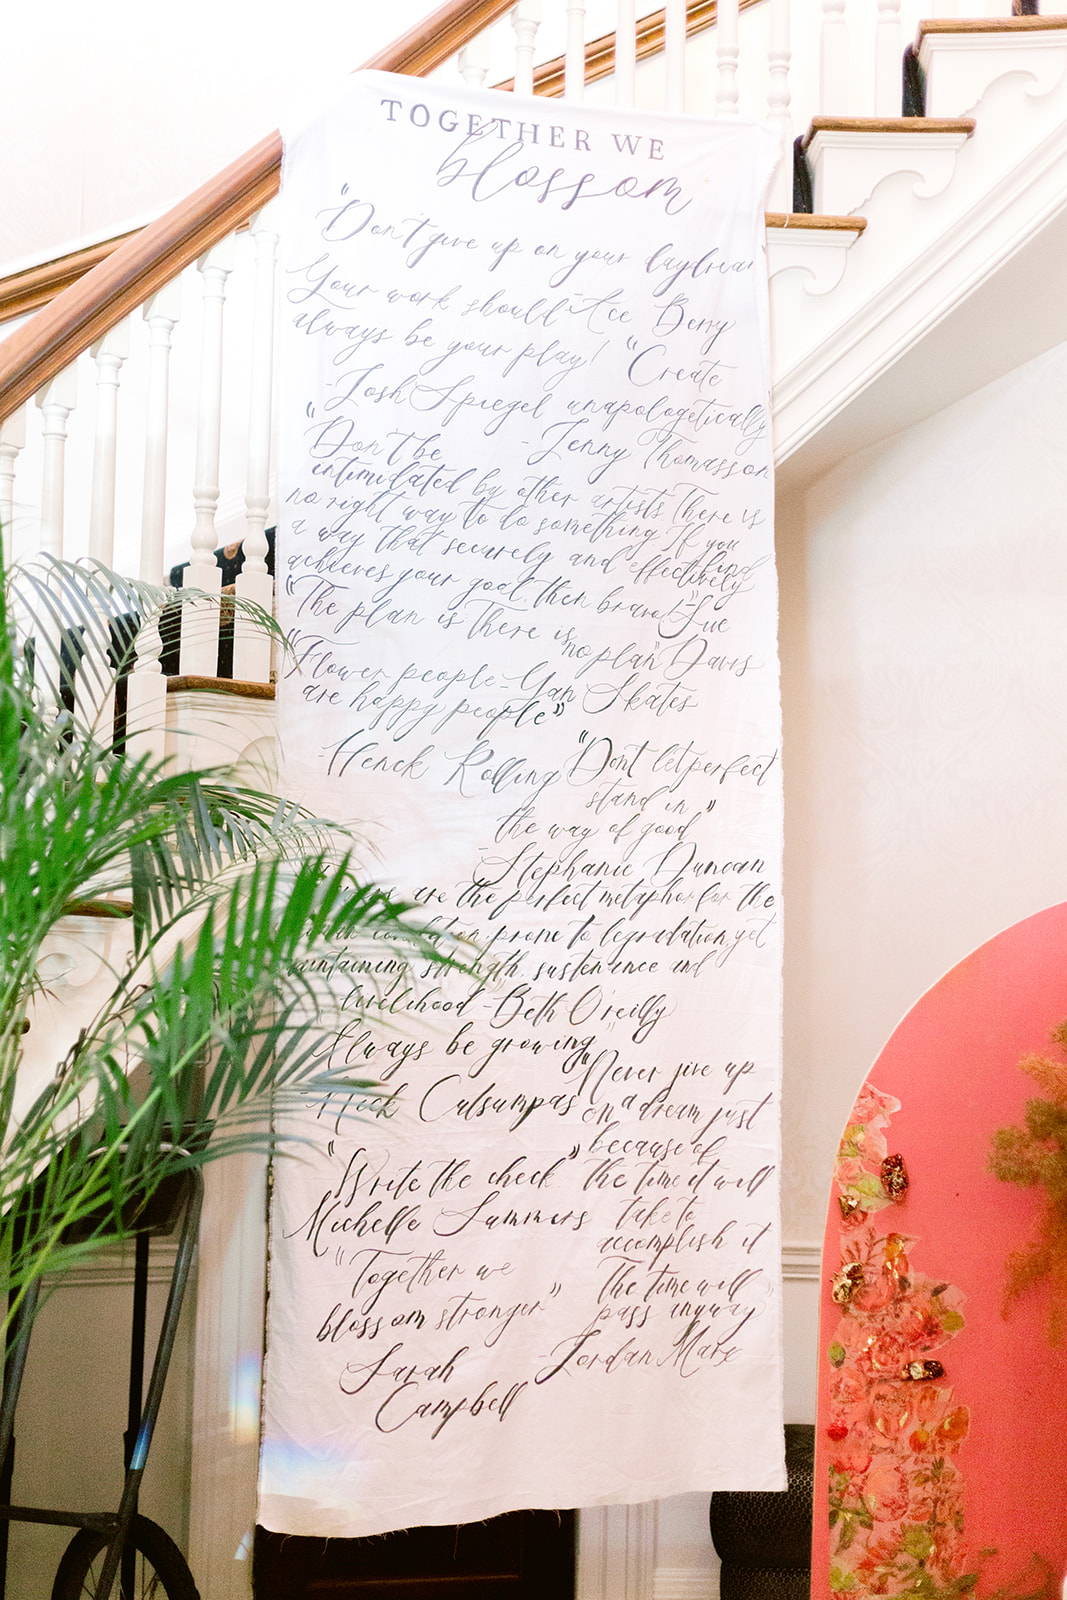 TOGETHER WE
blossom
"Don't give up on your daydream
Your work should -Cee Berry
always be your play! "Create
-Josh Spiegel unapologetically"
"Don't be - Jenny Thomasson
intimidated by other artists. There is
no right way to do something. If you find
a way that securely and effectively
achieves your goal, then bravo!" -Sue
"The plan is there is no plan" Davis
"Flower people -Yan Skates
are happy people"
-Henck Rolling "Don't let perfect
stand in
the way of good"
-Stephanie Duncan
are the perfect metaphor for the
condition: prone to degredation, yet
maintaining strength, sustenance and
livelihood -Beth O'reilly
Always be growing" "Never give up
Culsumpas on a dream just
because of
"Write the check" the time it will
Michelle Summers take to
accomplish it
"Together we The time will
blossom stronger" pass anyway"
Sarah -Jordan Marx
Campbell